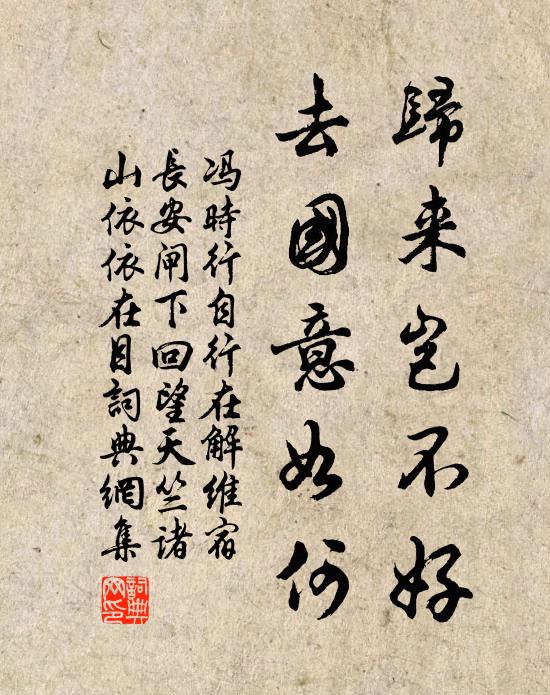 歸来豈不好
去國意如何
冯時行自行在解维宿
長安闸下回望天竺諸
山依依在目詞典網集
詞典網印